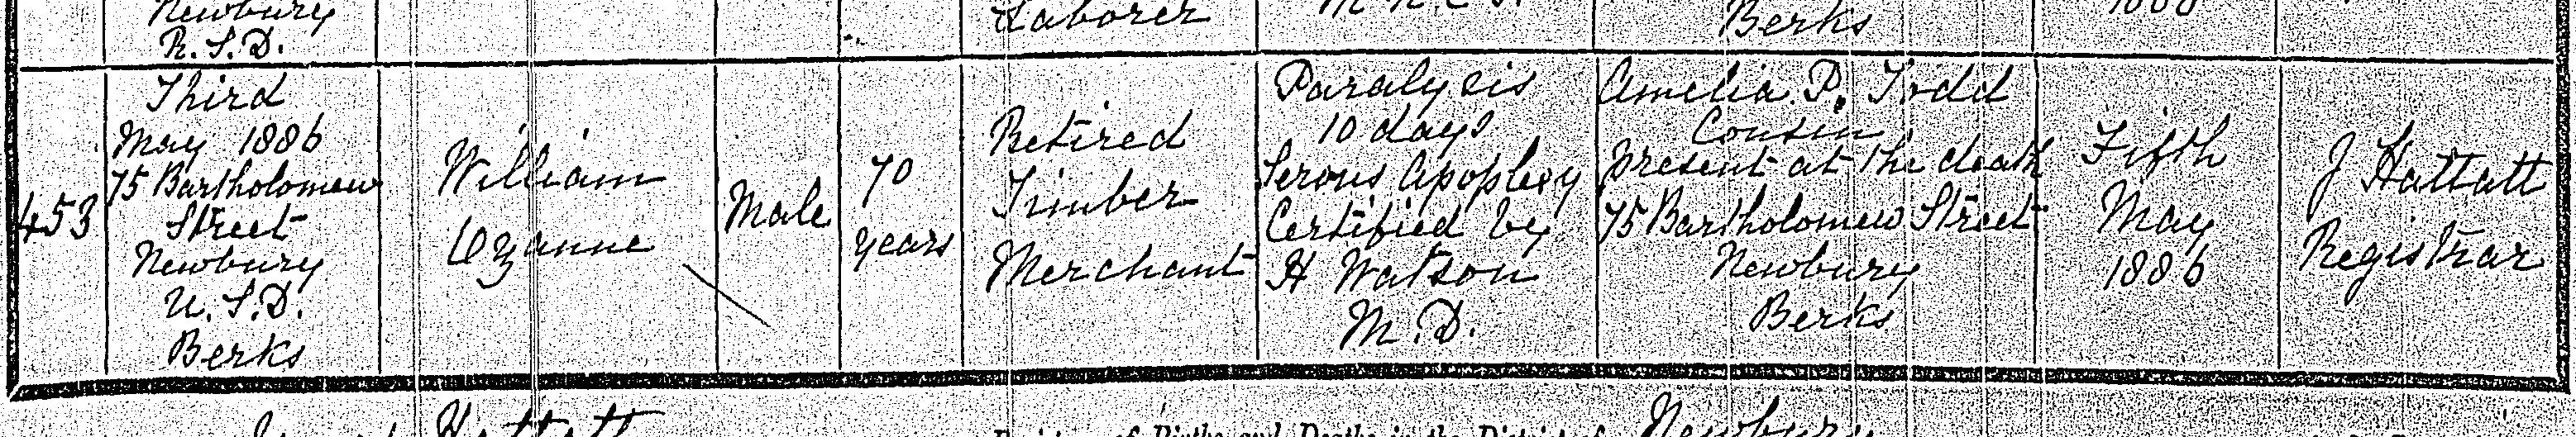 Newbury
R.S.D.
Laborer
Berks
453
Third
May 1886
75 Bartholomew
Street
Newbury
U.S.D.
Berks
William
Ozanne
Male
70
years
Retired
Timber
Merchant
Paralysis
10 days
Serous Apoplexy
Certified by
H Watson
M.D.
Amelia P. Todd
Cousin
present at the death
75 Bartholomew Street
Newbury
Berks
Fifth
May
1886
J Hattatt
Registrar
Hattatt
of Births and Deaths in the District of Newbury